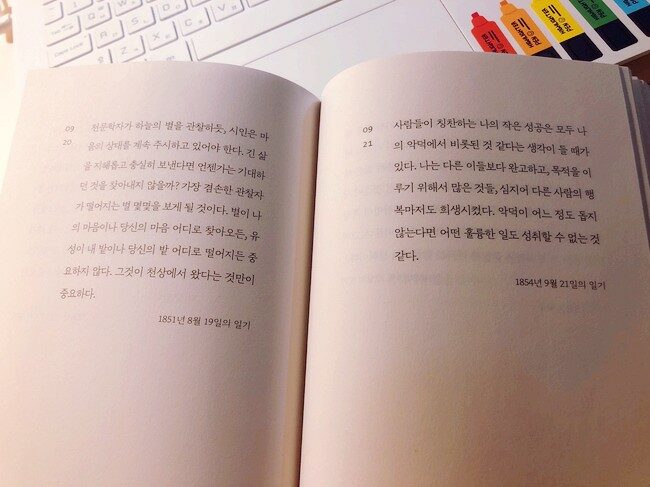 09
20
천문학자가 하늘의 별을 관찰하듯, 시인은 마
음의 상태를 계속 주시하고 있어야 한다. 긴 삶
을 지혜롭고 충실히 보낸다면 언젠가는 기대하
던 것을 찾아내지 않을까? 가장 겸손한 관찰자
가 떨어지는 별 몇몇을 보게 될 것이다. 별이 나
의 마음이나 당신의 마음 어디로 찾아오든, 유
성이 내 밭이나 당신의 밭 어디로 떨어지든 중
요하지 않다. 그것이 천상에서 왔다는 것만이
중요하다.
1851년 8월 19일의 일기
09
21
사람들이 칭찬하는 나의 작은 성공은 모두 나
의 악덕에서 비롯된 것 같다는 생각이 들 때가
있다. 나는 다른 이들보다 완고하고, 목적을 이
루기 위해서 많은 것들, 심지어 다른 사람의 행
복마저도 희생시켰다. 악덕이 어느 정도 돕지
않는다면 어떤 훌륭한 일도 성취할 수 없는 것
같다.
1854년 9월 21일의 일기